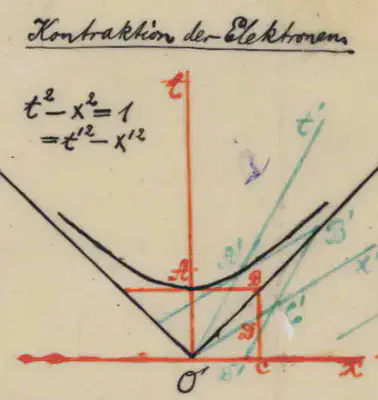 Kontraktion der Elektronen
t² – x² = 1
= t'² – x'²
t
t'
A
A'
B
B'
x'
C'
D'
O
C
x